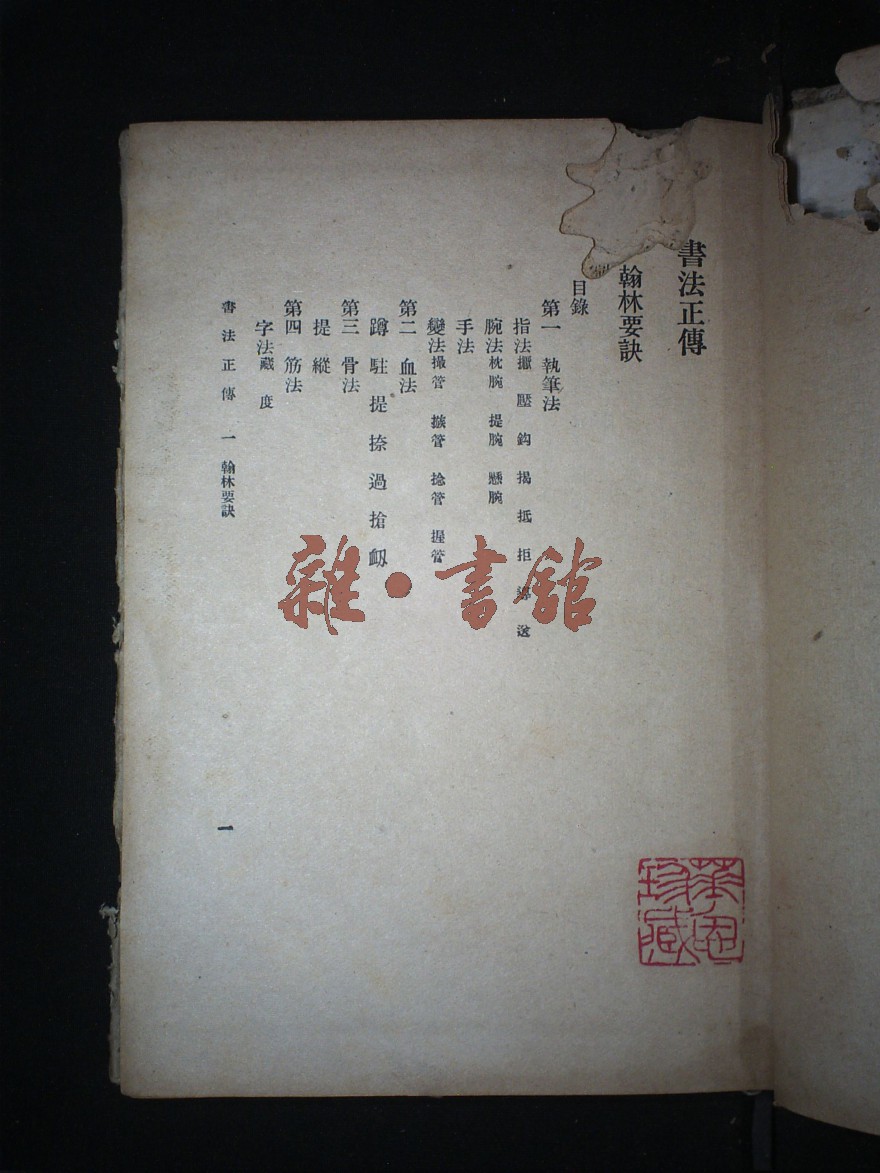 書法正傳
翰林要訣
目錄
第一 執筆法
指法擫 壓 鈎 揭 抵 拒 導 送
腕法枕腕 提腕 懸腕
手法
變法撮管 搦管 捻管 握管
第二 血法
蹲 駐 提 捺 過 搶 衄
第三 骨法
提 縱
第四 筋法
字法藏 度
書法正傳 一 翰林要訣
一
雜·書館
珍藏